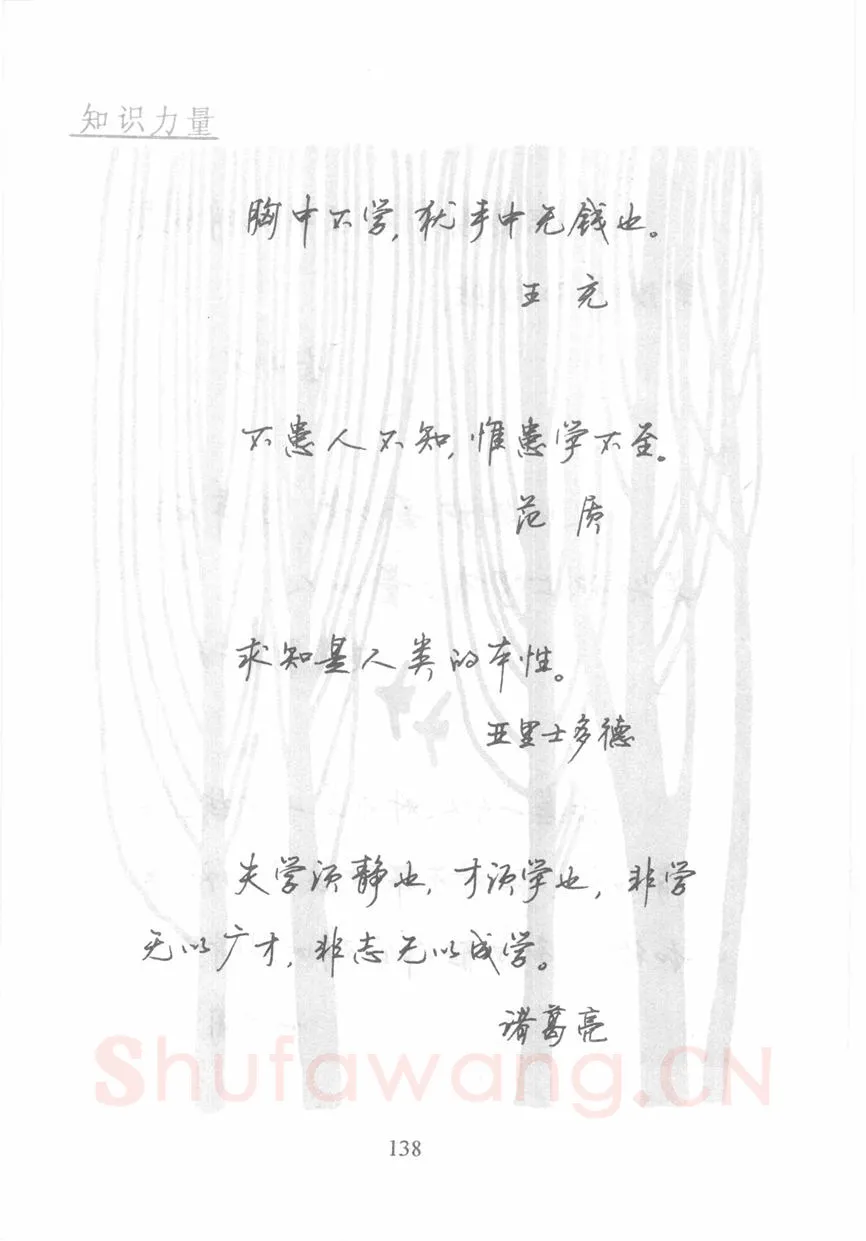 知识力量
胸中不学,犹手中无钱也。
王充
不患人不知,惟患学不至。
范质
求知是人类的本性。
亚里士多德
夫学须静也,才须学也,非学
无以广才,非志无以成学。
诸葛亮
Shufawang.CN
138